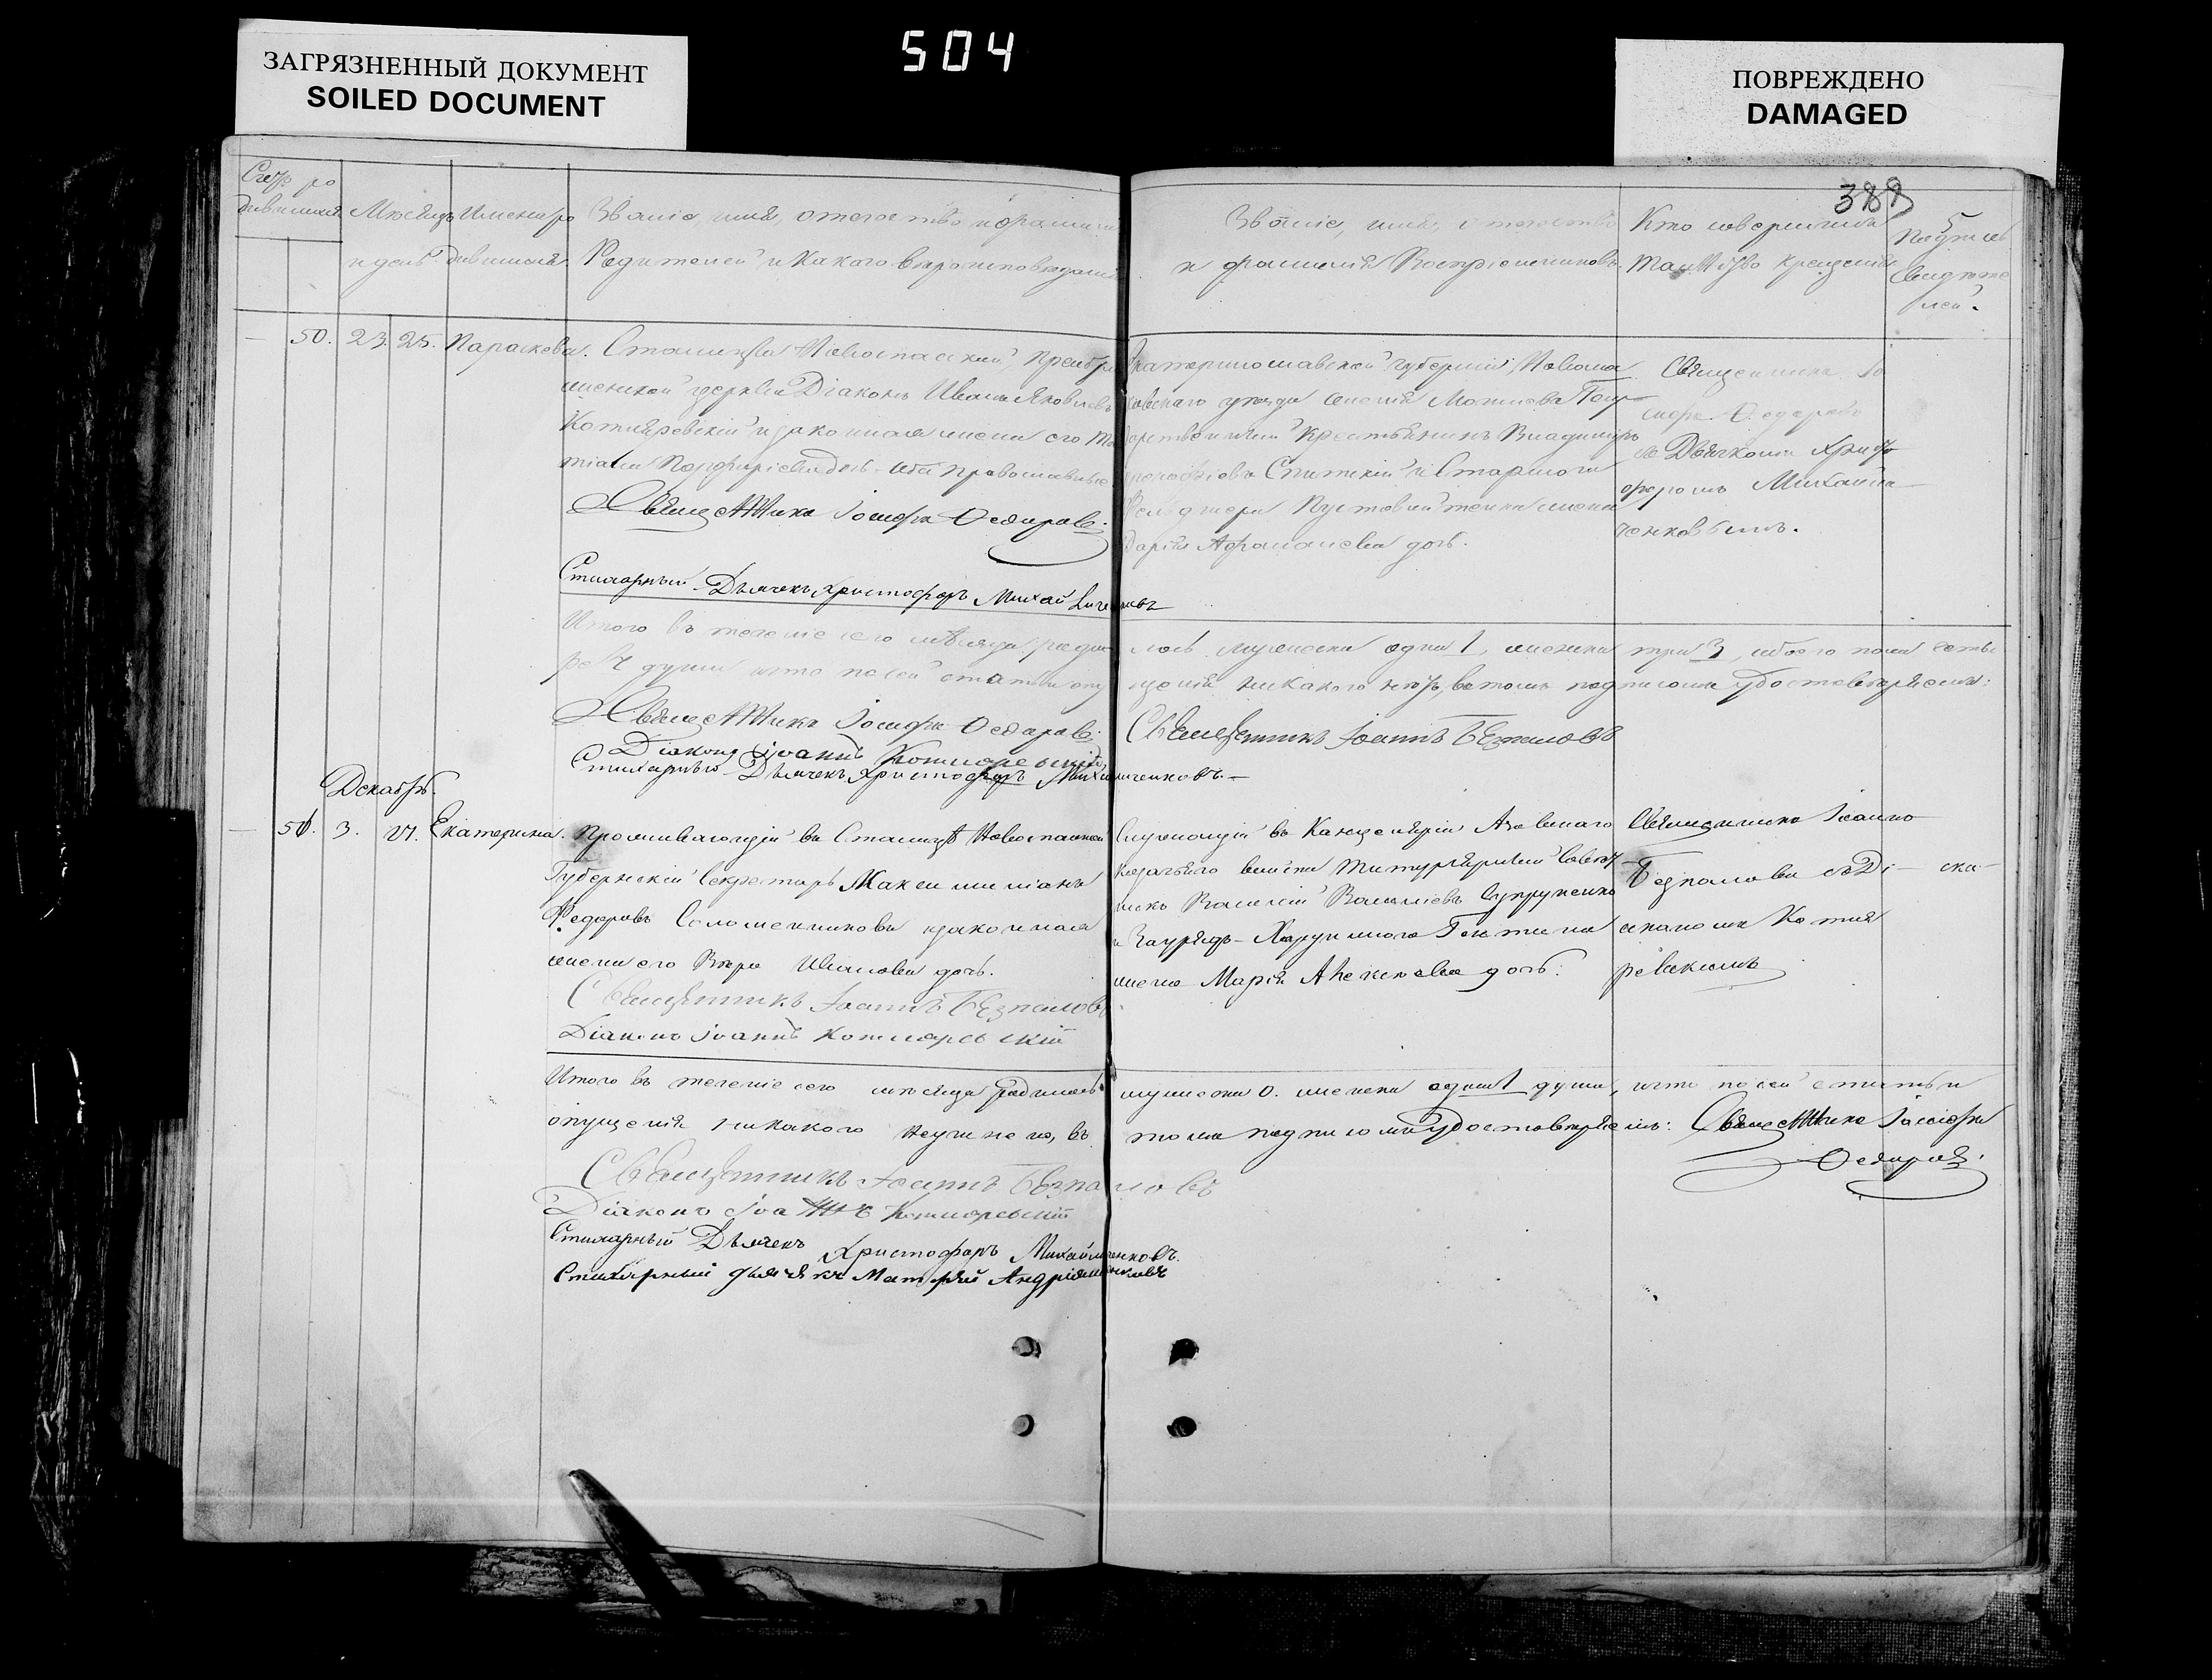 504
ЗАГРЯЗНЕННЫЙ ДОКУМЕНТ
SOILED DOCUMENT
ПОВРЕЖДЕНО
DAMAGED
388
Мѣсяцъ Имена ро Званіе, имя, отечество и фамилія
и день дившихся. Родителей и какого вѣроисповѣданія
Званіе, имя, отечество
и фамилія Воспріемниковъ.
Кто совершилъ
Таинство крещенія
Подпись
свидѣте
лей.
50. 23. 25. Параскева. Станицы Новоспаской, Преобра
женской церкви Діаконъ Иванъ Яковлевъ
Котляревскій и законная жена его Та
тіана Порфиріева дочь. оба православные
Екатеринославской губерніи, Новомо
сковскаго уѣзда Госу
дарственный крестьянинъ Владиміръ
и Старшого
Фельдшера жена
Дарія Афанасьева дочь.
Священникъ Іо
сифъ Ѳедоровъ
съ Дьячкомъ Христо
форомъ Михайли
ченковымъ.
Священникъ Іосифъ Ѳедоровъ.
Стихарный Дьячекъ Христофоръ Михайличенковъ
Итого въ теченіе сего мѣсяца роди лось мужеска одна 1, женска три 3, обоего пола четы
ре 4 души и что по сей статьи опу щенія никакого нѣтъ, въ томъ подписомъ удостовѣряемъ:
Священникъ Іосифъ Ѳедоровъ.
Священникъ Іоаннъ Безпаловъ
Діаконъ Іоаннъ Котляревскій
Стихарный Дьячекъ Христофоръ Михайличенковъ.
Декабрь.
51. 3. Екатерина. Проживающій въ Станицѣ Новоспаской
Губернскій Секретарь Максимиліанъ
Федоровъ Соломенниковъ и законная
жена его Вѣра Иванова дочь.
Служащій въ Канцеляріи Азовскаго
казачьяго войска Титулярный Совѣт
никъ Василій Васильевъ Супруненко
и Заурядъ-Хорунжого
жена Марія Алексѣева дочь.
Священникъ Іоаннъ
Безпаловъ съ Ді
акономъ Котля
ревскимъ
Священникъ Іоаннъ Безпаловъ
Діаконъ Іоаннъ Котляревскій
Итого въ теченіе сего мѣсяца родилось мужеска 0. женска одна 1 душа, и что по сей статьи
опущенія никакого неучинено, въ томъ подписомъ удостовѣряемъ: Священникъ Іосифъ
Ѳедоровъ.
Священникъ Іоаннъ Безпаловъ
Діаконъ Іоаннъ Котляревскій
Стихарный Дьячекъ Христофоръ Михайличенковъ.
Стихарный дьячекъ Матфей Андріяшенковъ